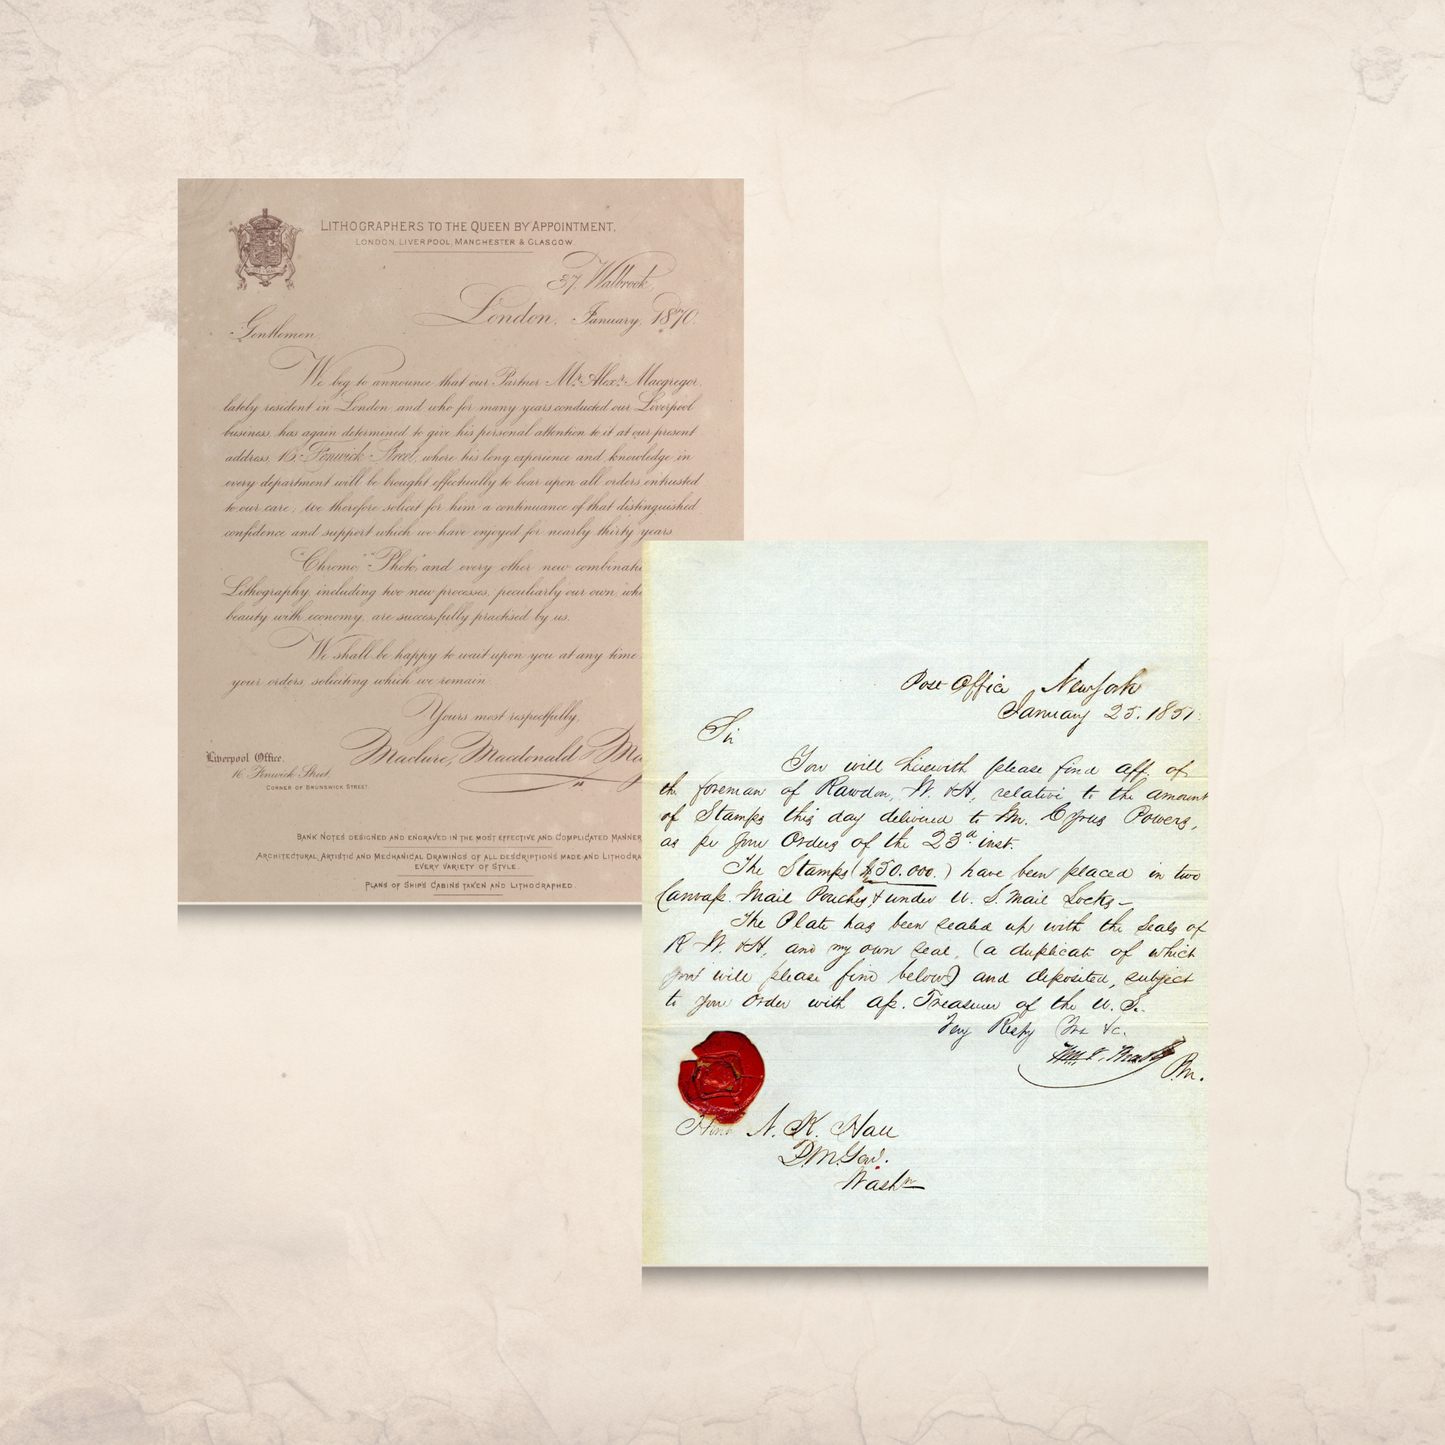 LITHOGRAPHERS TO THE QUEEN BY APPOINTMENT.
LONDON, LIVERPOOL, MANCHESTER & GLASGOW.
37, Walbrook,
London, January, 1870.
Gentlemen
We beg to announce that our Partner Mr. Alexr. Macgregor,
lately resident in London, and who for many years conducted our Liverpool
business, has again determined to give his personal attention to it at our present
address, 16, Fenwick Street, where his long experience and knowledge in
every department will be brought effectually to bear upon all orders entrusted
to our care; we therefore solicit for him a continuance of that distinguished
confidence and support which we have enjoyed for nearly thirty years.
"Chromo" "Photo", and every other new combinati
Lithography, including two new processes, peculiarly our own, whi
beauty with economy, are successfully practised by us.
We shall be happy to wait upon you at any time
your orders, soliciting which we remain
Yours most respectfully,
Maclure, Macdonald & Ma
Liverpool Office.
16, Fenwick Street,
CORNER OF BRUNSWICK STREET.
BANK NOTES DESIGNED AND ENGRAVED IN THE MOST EFFECTIVE AND COMPLICATED MANNER
ARCHITECTURAL, ARTISTIC AND MECHANICAL DRAWINGS OF ALL DESCRIPTIONS MADE AND LITHOGRA
EVERY VARIETY OF STYLE.
PLANS OF SHIPS CABINS TAKEN AND LITHOGRAPHED.
Post Office New York
January 25. 1851.
Sir
You will herewith please find aff. of
the foreman of Rawdon, W. & H, relative to the amount
of Stamps this day delivered to Mr. Cyrus Powers,
as pr your Orders of the 23d inst.
The Stamps ($50.000.) have been placed in two
Canvass Mail Pouches & under U. S. Mail Locks—
The Plate has been sealed up with the Seals of
R W. & H, and my own seal, (a duplicate of which
you will please find below) and deposited, subject
to your order with as. Treasurer of the U. S.
Very Respy Yrs &c.
Wm V. Brady P.M.
Hon. N. K. Hall
P.M. Genl.
Washn